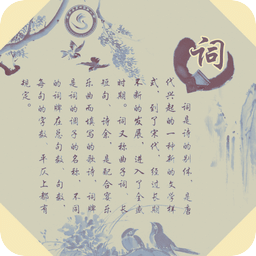 词
词是诗的别体，是唐
代兴起的一种新的文学样
式，到了宋代，经过长期
不断的发展，进入了全盛
时期。词又称曲子词、长
短句、诗余，是配合宴乐
乐曲而填写的歌诗，词牌
是词的调子的名称，不同
的词牌在总句数、句数，
每句的字数、平仄上都有
规定。